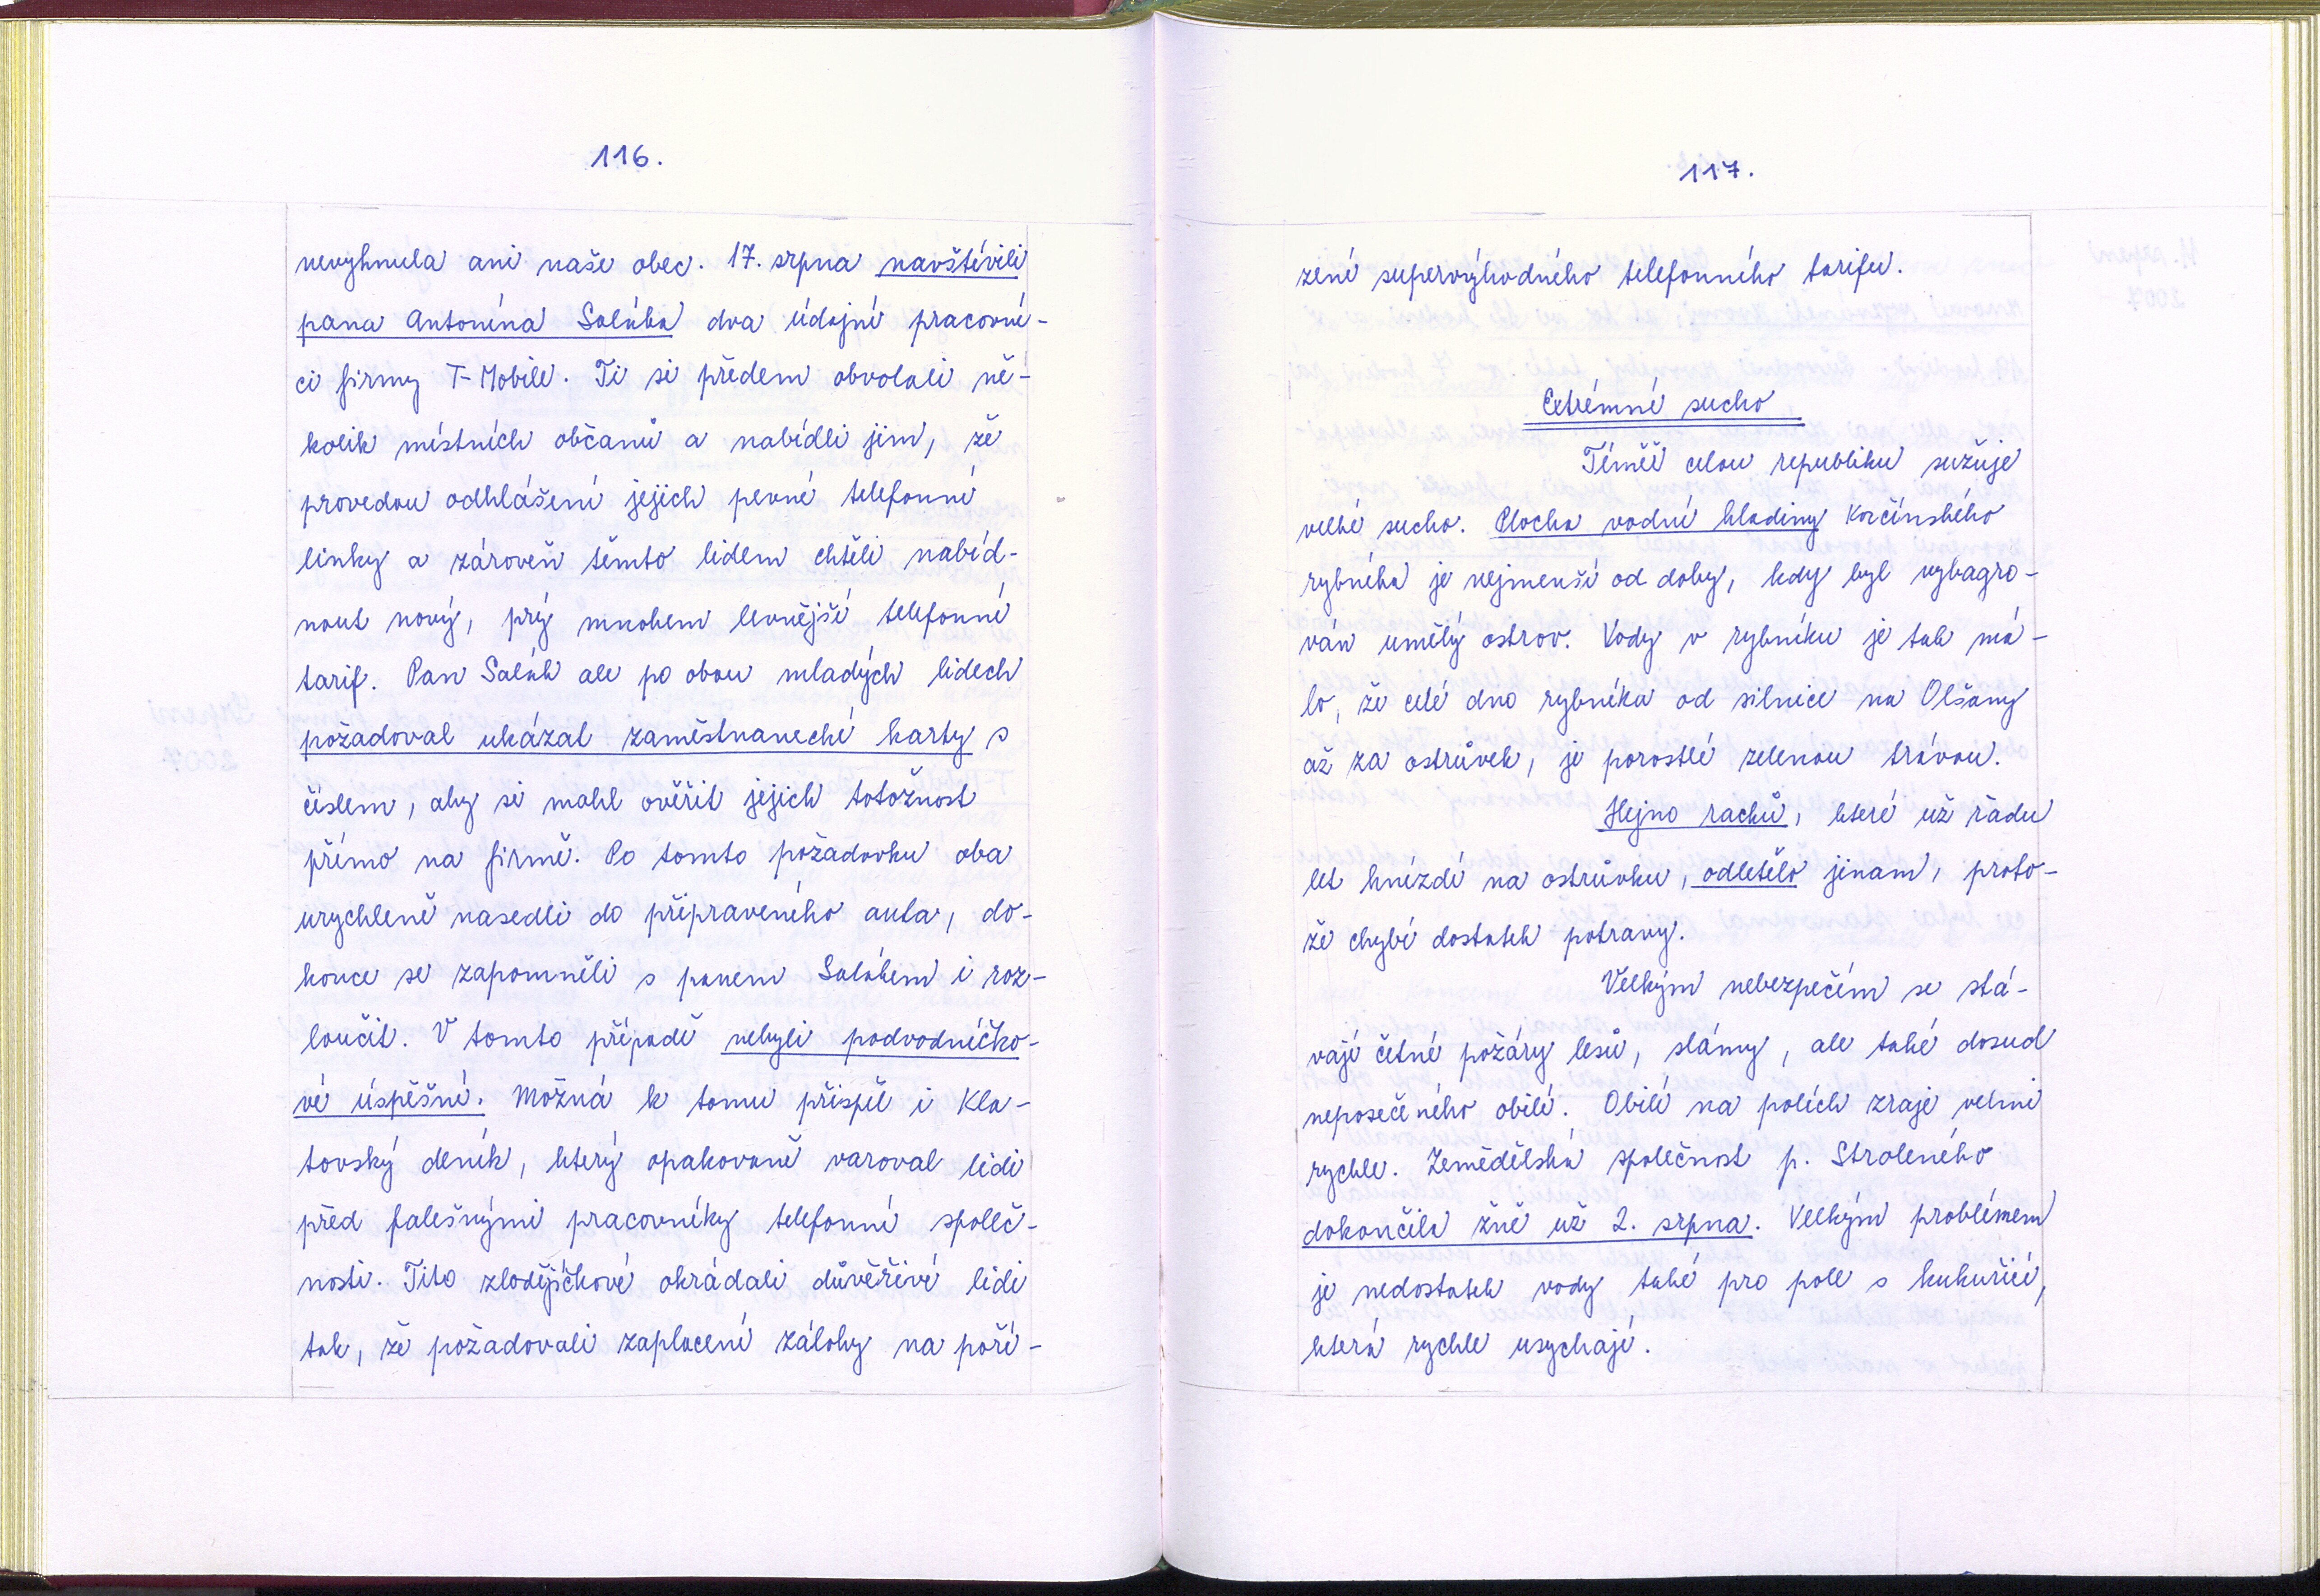 116.
nevyhnula ani naše obec. 17. srpna navštívili
pana Antonína Saláka dva údajní pracovní-
ci firmy T-Mobile. Ti si předem obvolali ně-
kolik místních občanů a nabídli jim, že
provedou odhlášení jejich pevné telefonní
linky a zároveň těmto lidem chtěli nabíd-
nout nový, prý mnohem levnější telefonní
tarif. Pan Salák ale po obou mladých lidech
požadoval ukázat zaměstnanecké karty s
číslem, aby si mohl ověřit jejich totožnost
přímo na firmě. Po tomto požadavku oba
urychleně nasedli do připraveného auta, do-
konce se zapomněli s panem Salákem i roz-
loučit. V tomto případě nebyli podvodníčko-
vé úspěšní. Možná k tomu přispěl i Kla-
tovský deník, který opakovaně varoval lidi
před falešnými pracovníky telefonní společ-
nosti. Tito zlodějíčkové okrádali důvěřivé lidi
tak, že požadovali zaplacení zálohy na poří-
117.
zení supervýhodného telefonního tarifu.
Extrémní sucho
Téměř celou republiku sužuje
velké sucho. Plocha vodní hladiny Kozčínského
rybníka je nejmenší od doby, kdy byl vybagro-
ván umělý ostrov. Vody v rybníku je tak má-
lo, že celé dno rybníka od silnice na Olšany
až za ostrůvek, je porostlé zelenou trávou.
Hejno racků, které už řadu
let hnízdí na ostrůvku, odletělo jinam, proto-
že chybí dostatek potravy.
Velkým nebezpečím se stá-
vají četné požáry lesů, slámy, ale také dosud
neposečeného obilí. Obilí na polích zraje velmi
rychle. Zemědělská společnost p. Straleného
dokončila žně už 2. srpna. Velkým problémem
je nedostatek vody také pro pole s kukuřicí,
která rychle usychají.